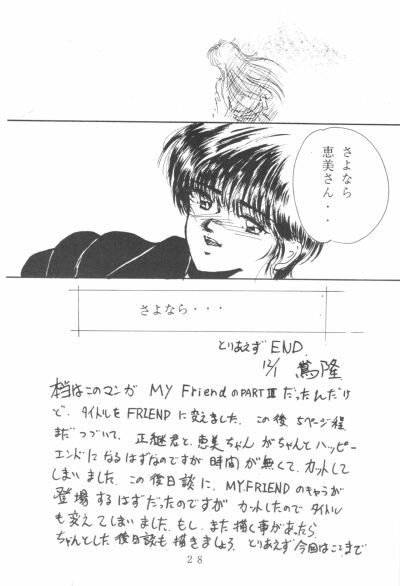 さよなら
恵美さん・・
さよなら・・・
とりあえず END.
12/1 蔦隆
本当はこのマンガ MY FriendのPART Ⅲだったんだけ
ど、タイトルをFRIENDに変えました。この後5ページ程
まだつづいて、正継君と、恵美ちゃんがちゃんとハッピー
エンドになるはずなのですが時間が無くて、カットして
しまいました。この後日談に、MY.FRIENDのキャラが
登場するはずだったのですがカットしたのでタイトル
も変えてしまいました。もし、また描く事があったら、
ちゃんとした後日談も描きましょう。とりあえず今回はここまで
28